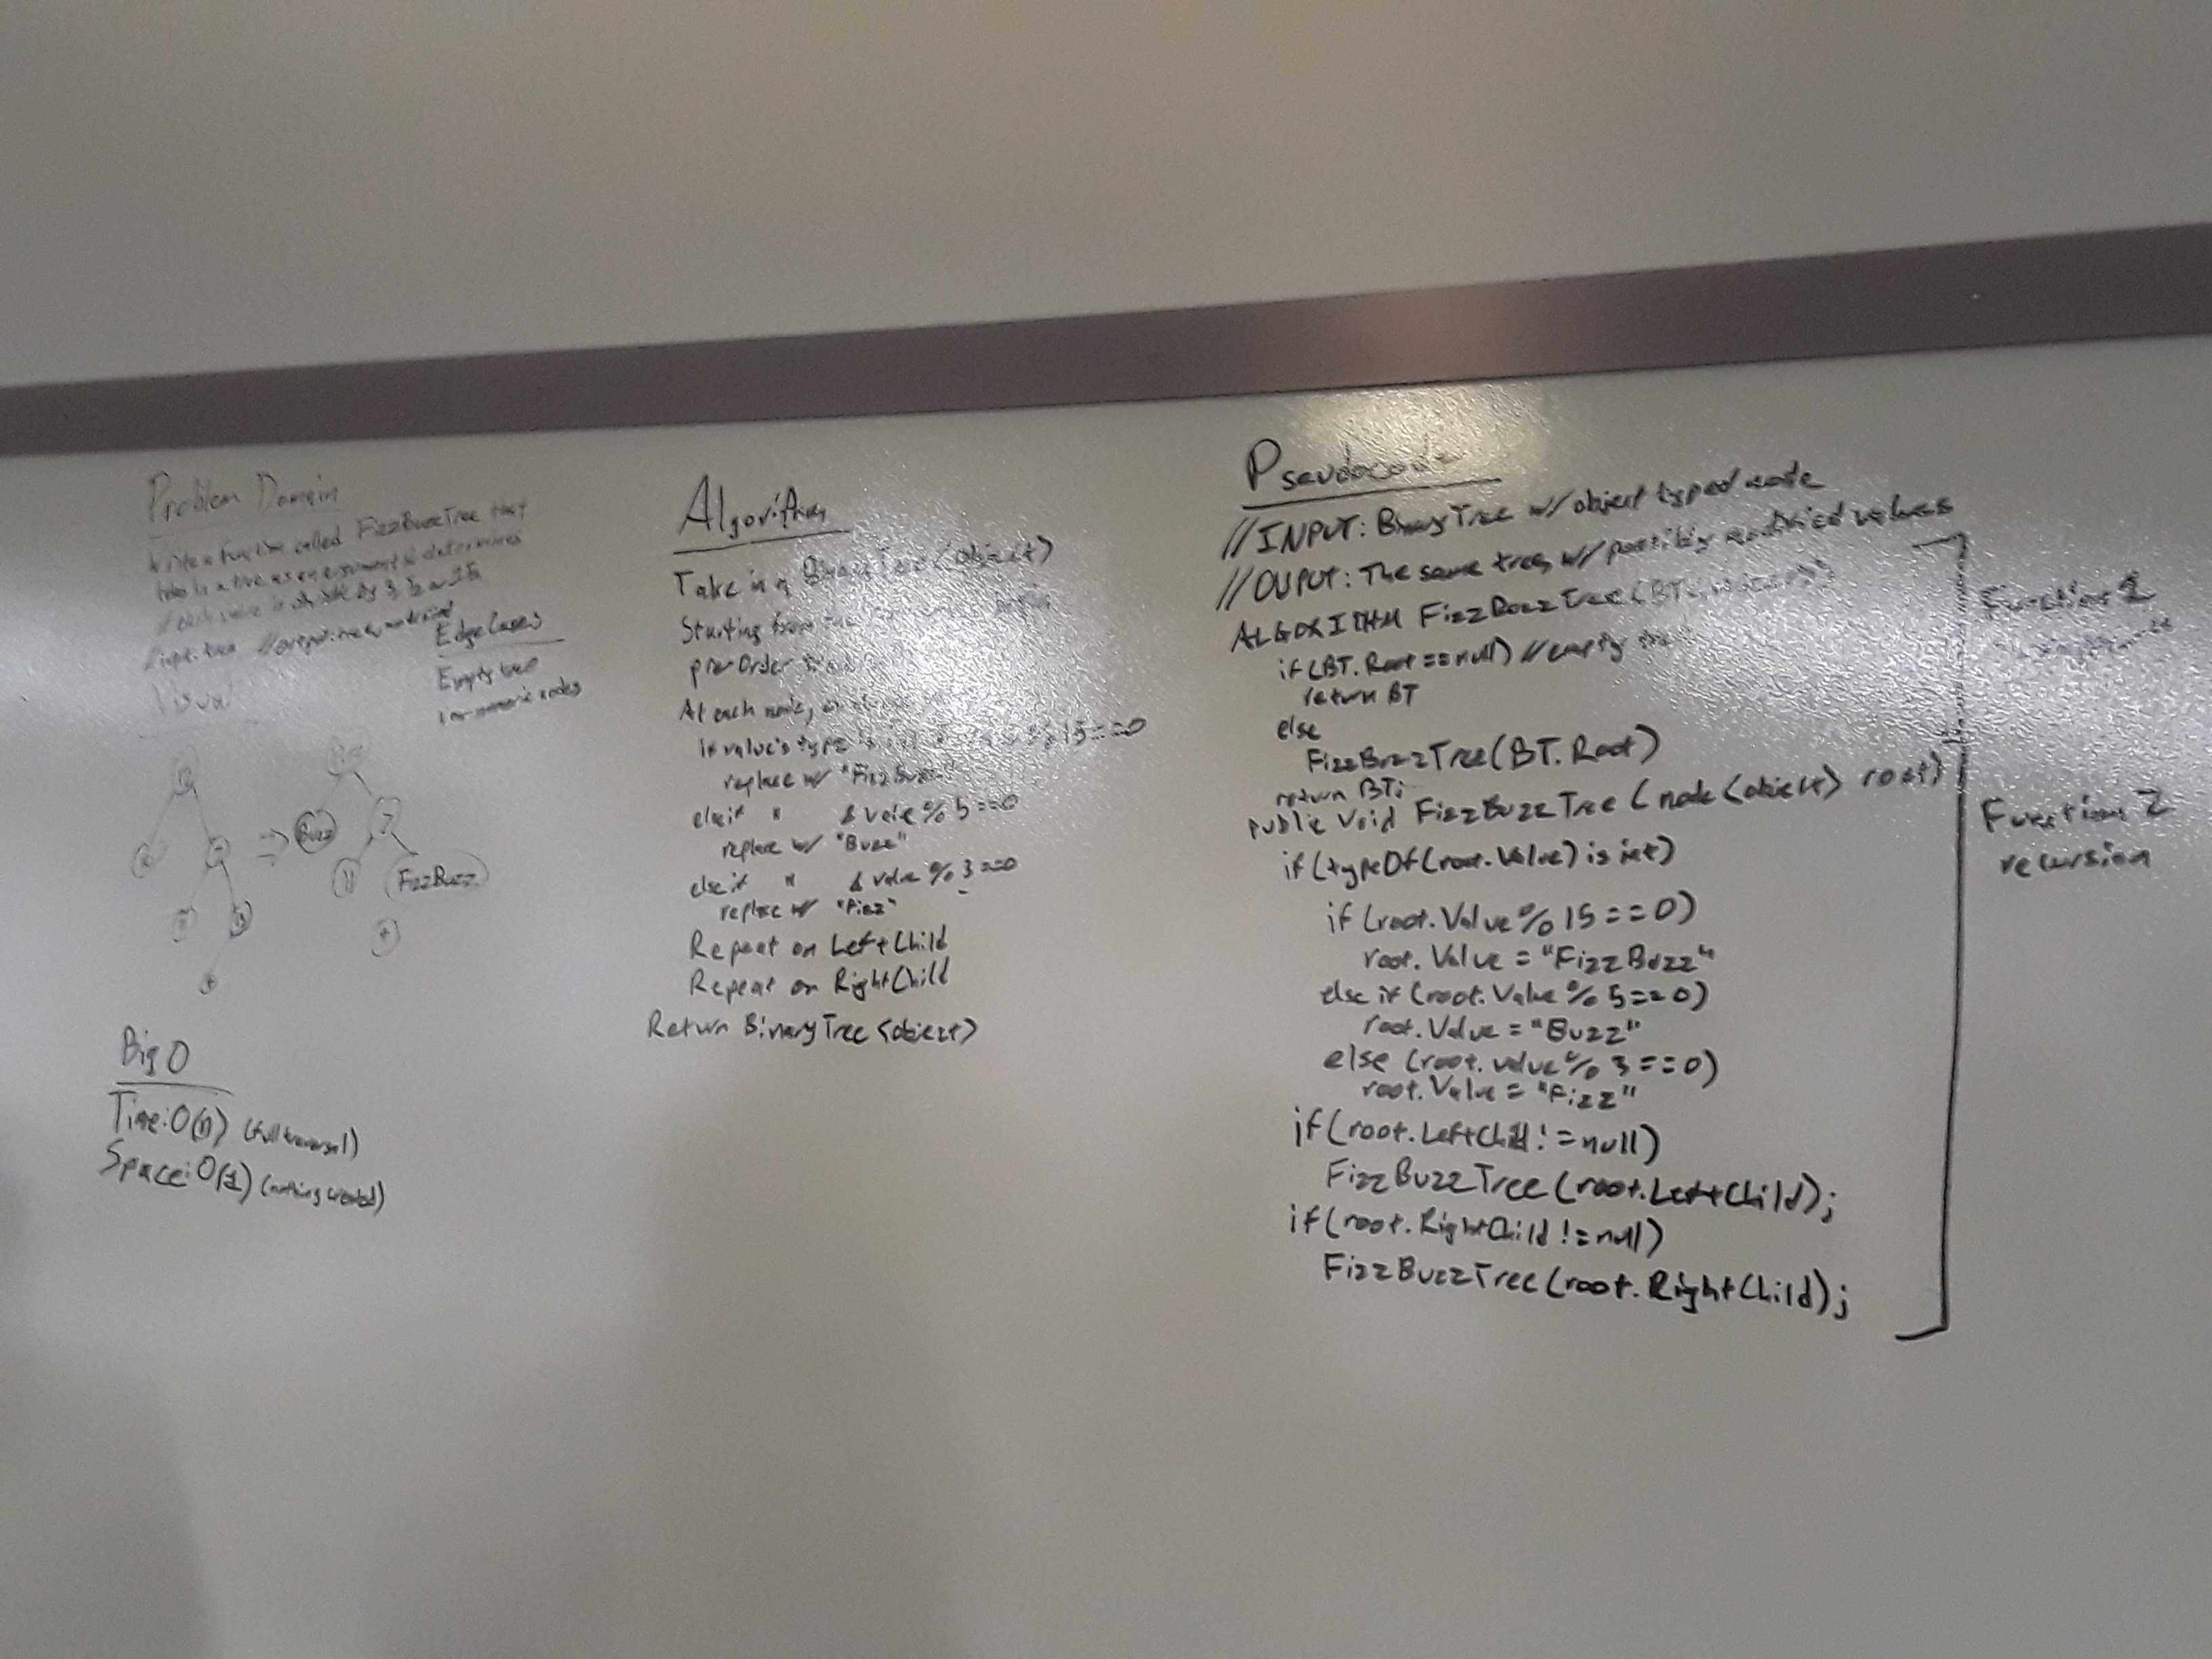 Problem Domain
Write a function called FizzBuzzTree that
takes in a tree as an argument & determines
if each value is divisible by 3, 5 or 15
//input: tree //output: tree, modified
Edge Cases
Empty tree
non-numeric nodes
Visual
Buzz
7
11
FizzBuzz
4
Big O
Time: O(n) (full traversal)
Space: O(1) (nothing created)
Algorithm
Take in a BinaryTree<object>
Starting from the
preOrder
At each node,
If value's type is int % 15==0
replace w/ "FizzBuzz"
else if " & value % 5==0
replace w/ "Buzz"
else if " & value % 3==0
replace w/ "Fizz"
Repeat on LeftChild
Repeat on RightChild
Return BinaryTree<object>
Pseudocode
//INPUT: BinaryTree w/ object typed node
//OUPUT: The same tree, w/ possibly modified values
ALGORITHM FizzBuzzTree(BT
if(BT.Root==null) //empty
return BT
else
FizzBuzzTree(BT.Root)
return BT;
public void FizzBuzzTree (node<object> root)
if(typeOf(root.Value) is int)
if(root.Value % 15==0)
root.Value = "FizzBuzz"
else if (root.Value % 5==0)
root.Value = "Buzz"
else (root.value % 3==0)
root.Value = "Fizz"
if(root.LeftChild != null)
FizzBuzzTree(root.LeftChild);
if(root.RightChild != null)
FizzBuzzTree(root.RightChild);
Function 1
Function 2
recursion